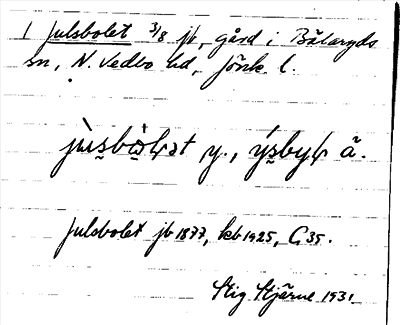 1 Julsbolet 3/8 jb, gård i Bälaryds
sn, N. Vedbo hd, Jönk l.
y., ä.
Julsbolet jb 1877, kb 1925, G 35.
Stig Hjärne 1931